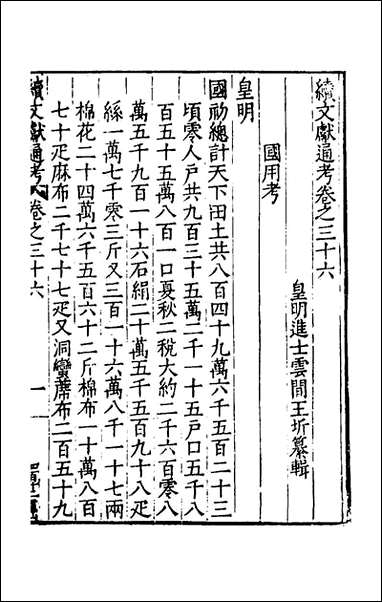 續文獻通考卷之三十六
皇明進士雲間王圻纂輯
國用考
皇明
國初總計天下田土共八百四十九萬六千五百二十三
頃零人戶共九百三十五萬二千一十五戶口五千八
百五十五萬八百一口夏秋二稅大約二千六百零八
萬五千九百一十六石絹二十萬五千五百九十八疋
絲一萬七千零三斤又三百一十六萬八千一十七兩
棉花二十四萬六千五百六十二斤棉布一十萬八百
七十疋麻布二千七十七疋又洞蠻麻布二百五十九
續文獻通考 卷之三十六 一